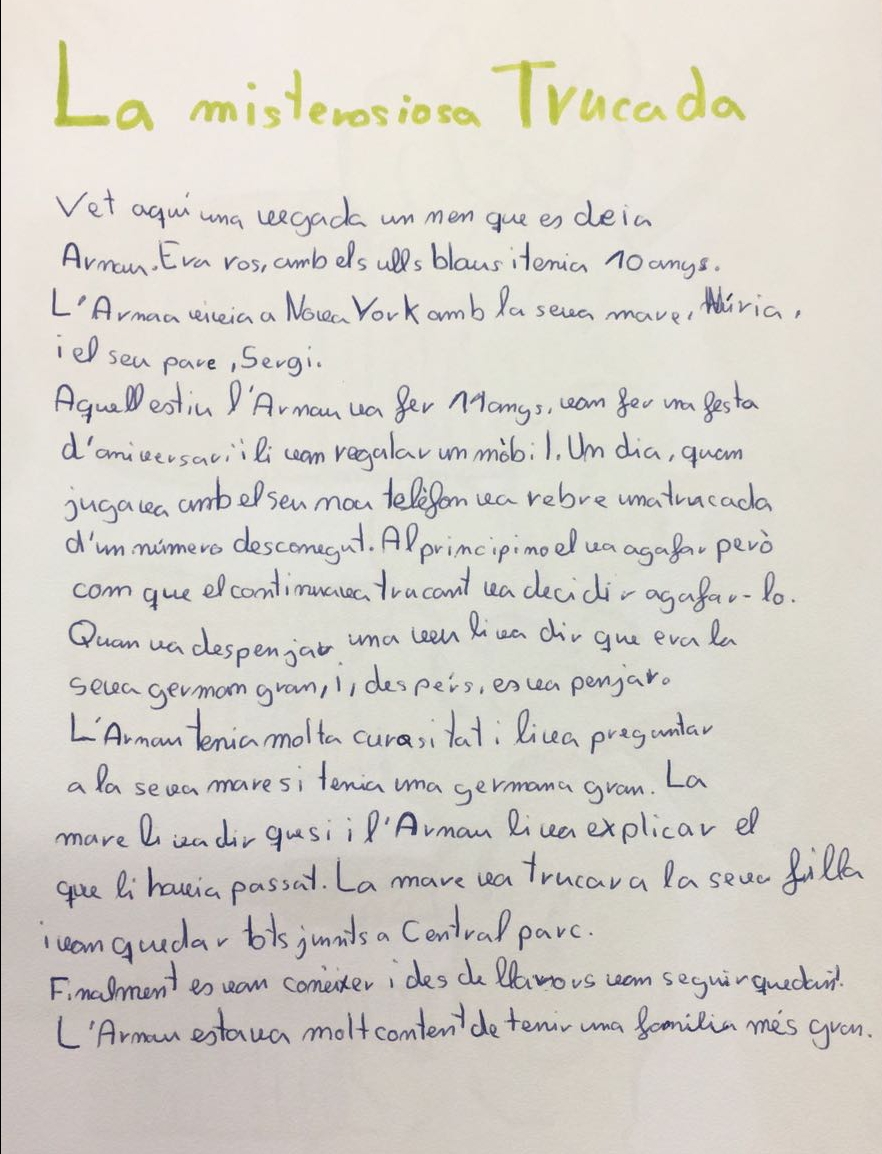 La misterosiosa Trucada
Vet aquí una vegada un nen que es deia
Arnau. Era ros, amb els ulls blaus i tenia 10 anys.
L'Arnau vivia a Nova York amb la seva mare, Núria,
i el seu pare, Sergi.
Aquell estiu l'Arnau va fer 11 anys, vam fer una festa
d'aniversari i li van regalar un mòbil. Un dia, quan
jugava amb el seu nou telèfon va rebre una trucada
d'un número desconegut. Al principi no el va agafar però
com que el continuava trucant va decidir agafar-lo.
Quan va despenjar una veu li va dir que era la
seva german gran, i, després, es va penjar.
L'Arnau tenia molta curositat i li va preguntar
a la seva mare si tenia una germana gran. La
mare li va dir que si i l'Arnau li va explicar el
que li havia passat. La mare va trucar a la seva filla
i van quedar tots junts a Central parc.
Finalment es van conèixer i des de llavors van seguir quedant.
L'Arnau estava molt content de tenir una família més gran.